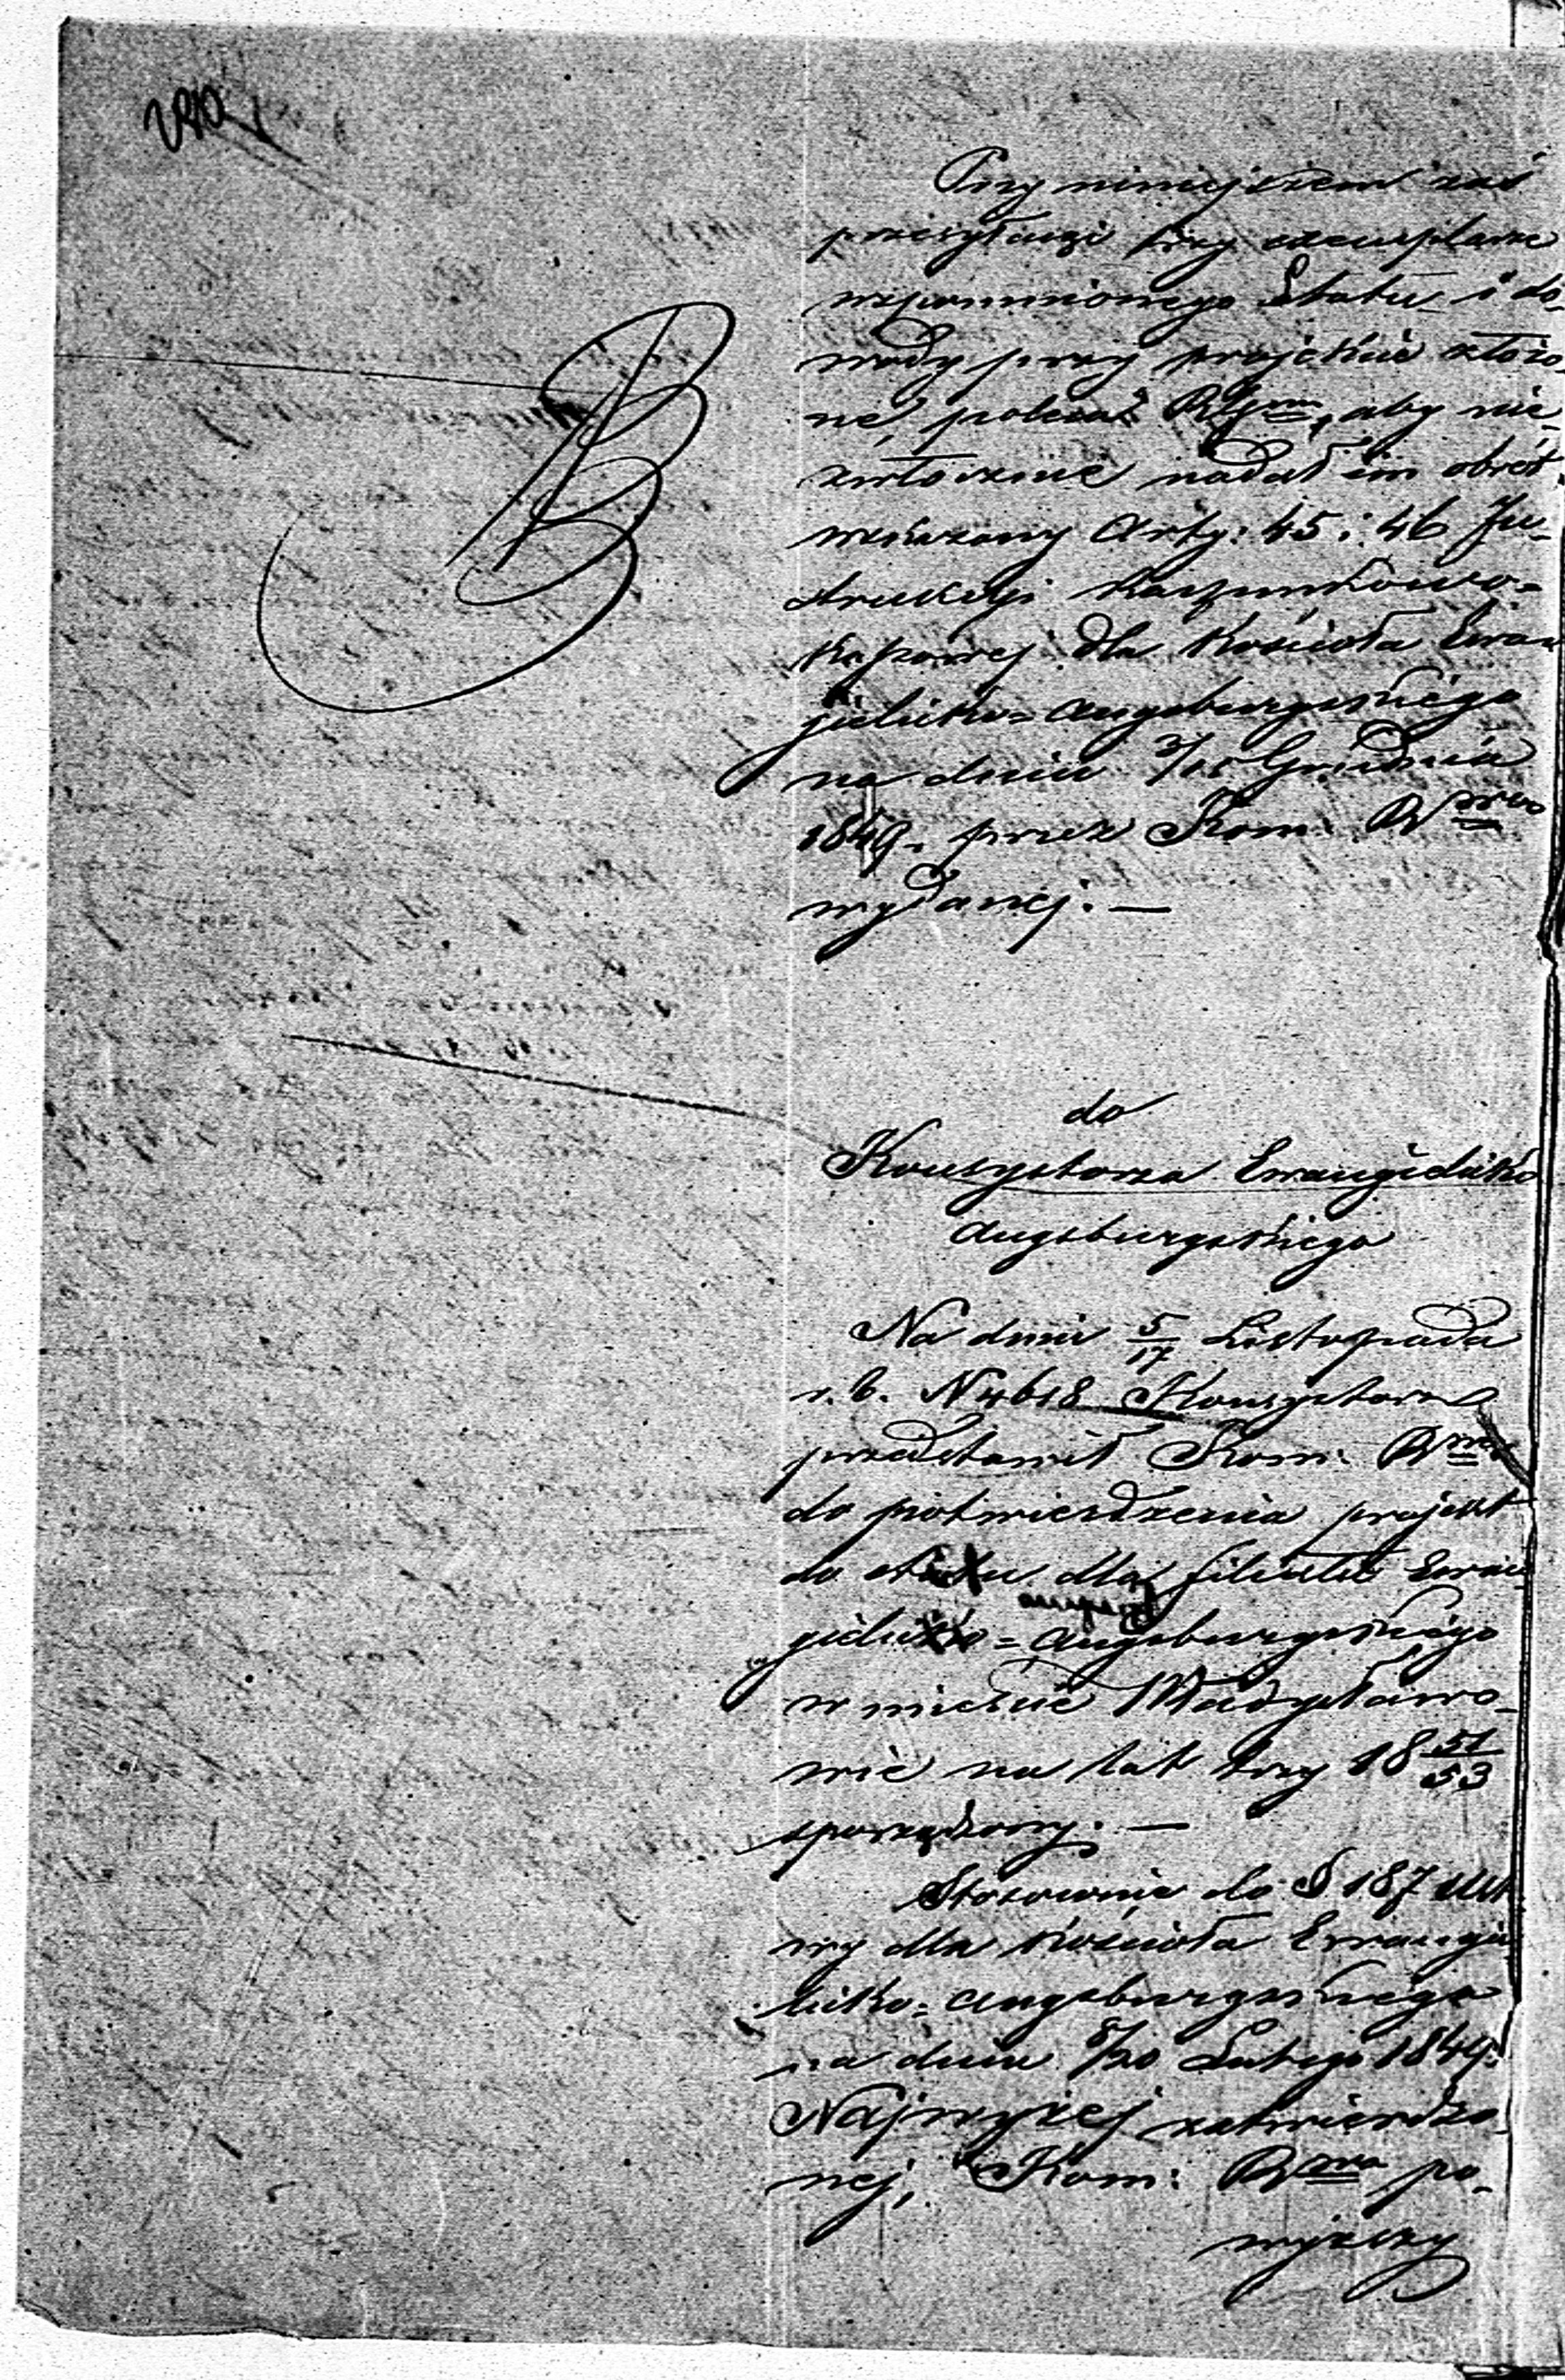 Przy niniejszem zaś
przesyłając trzy exemplarze
wspomnionego Etatu i do,
wody przy projekcie złożo,
ne, poleca Rząd, aby nie,
zwłocznie nadał im obrót
wskazany Arty: 45 i 46 In,
strukcyi Rachunkowo=
Kassowej dla Kościoła Ewan
gielicko=Augsburgskiego
na dniu 3/15 Grudnia
1849 r. przez Kom: Rząową
wydanej. —
do
Konsystorza Ewangielicko
Augsburgskiego
Na dniu 5/17 Listopada
r. b. N 4618 Konsystorz
przedstawił Kom: Rząwej
do potwierdzenia projekt
do etatu dla filiału Ewan
gielicko=Augsburgskiego
w mieście Władysławo,
wie na lat trzy 18 51/53
sporządzony. —
Stosownie do § 187 Usta
wy dla Kościoła Ewangie
licko=Augsburgskiego
na dniu 8/20 Lutego 1849 r.
Najwyżej zatwierdzo,
nej, Kom: Rząwa po,
wyższy